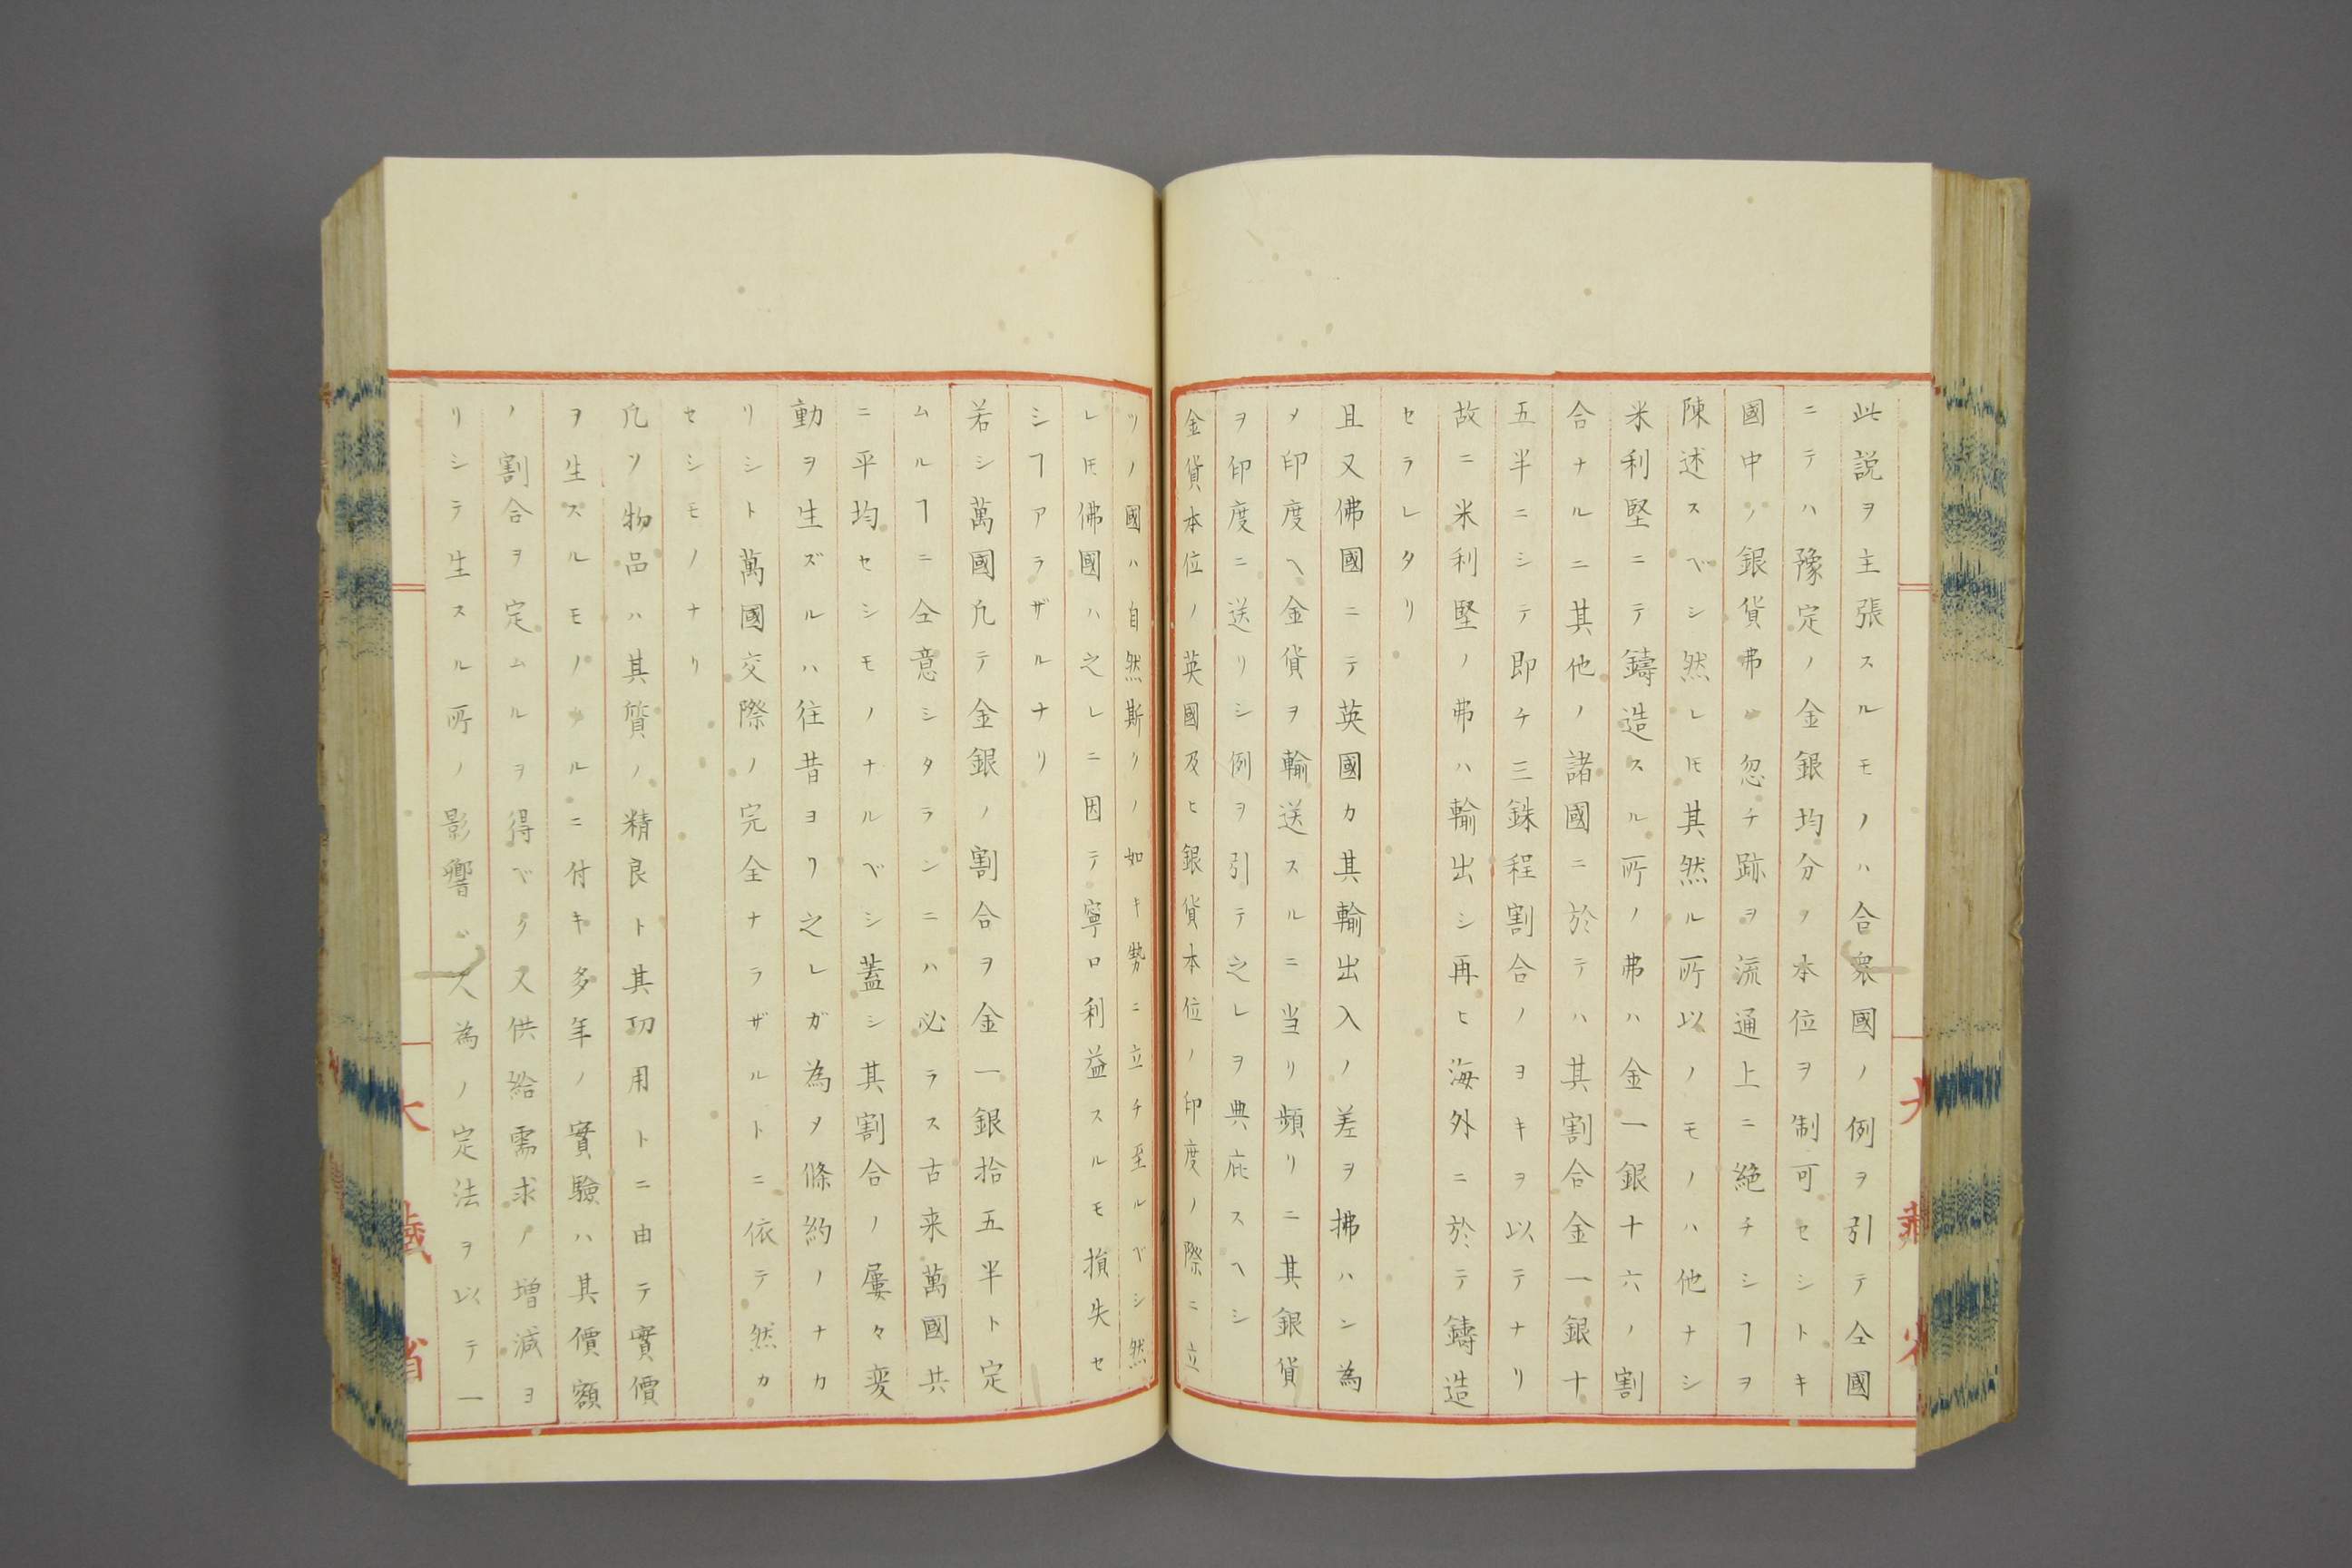 此説ヲ主張スルモノハ合衆國ノ例ヲ引テ仝國
ニテハ豫定ノ金銀均分ヲ本位ヲ制可セシトキ
國中ノ銀貨弗ル忽チ跡ヲ流通上ニ絶チシヿヲ
陳述スベシ然レ𪜈其然ル所以ノモノハ他ナシ
米利堅ニテ鑄造スル所ノ弗ハ金一銀十六ノ割
合ナルニ其他ノ諸國ニ於テハ其割合金一銀十
五半ニシテ即チ三銖程割合ノヨキヲ以テナリ
故ニ米利堅ノ弗ハ輸出シ再ヒ海外ニ於テ鑄造
セラレタリ
且又佛國ニテ英國カ其輸出入ノ差ヲ拂ハン為
メ印度ヘ金貨ヲ輸送スルニ当リ頻リニ其銀貨
ヲ印度ニ送リシ例ヲ引テ之レヲ典庇スヘシ
金貨本位ノ英國及ヒ銀貨本位ノ印度ノ際ニ立
ツノ國ハ自然斯クノ如キ勢ニ立チ至ルベシ然
レ𪜈佛國ハ之レニ因テ寧ロ利益スルモ損失セ
シヿアラザルナリ
若シ萬國凢テ金銀ノ割合ヲ金一銀拾五半ト定
ムルヿニ仝意シタランニハ必ラス古来萬國共
ニ平均セシモノナルベシ蓋シ其割合ノ屢々変
動ヲ生ズルハ往昔ヨリ之レガ為メ條約ノナカ
リシト萬國交際ノ完全ナラザルトニ依テ然カ
セシモノナリ
凢ソ物品ハ其質ノ精良ト其功用トニ由テ實價
ヲ生スルモノナルニ付キ多年ノ實驗ハ其價額
ノ割合ヲ定ムルヲ得ベク又供給需求ノ増減ヨ
リシテ生スル所ノ影響ハ人為ノ定法ヲ以テ一
大藏省
大藏省